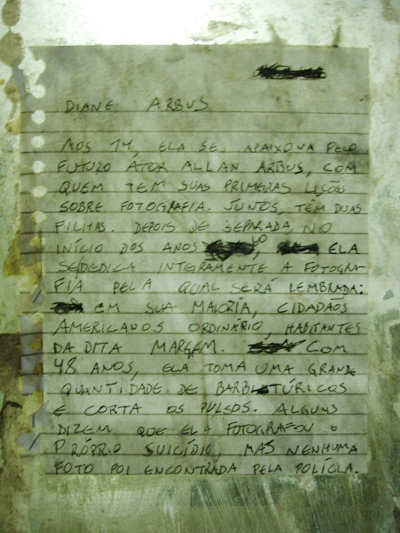 DIANE ARBUS
AOS 14, ELA SE APAIXONA PELO
FUTURO ATOR ALLAN ARBUS, COM
QUEM TEM SUAS PRIMEIRAS LIÇÕES
SOBRE FOTOGRAFIA. JUNTOS, TÊM DUAS
FILHAS. DEPOIS DE SEPARADA, NO
INÍCIO DOS ANOS 60, ELA
SE DEDICA INTEGRAMENTE A FOTOGRA-
FIA PELA QUAL SERÁ LEMBRADA:
EM SUA MAIORIA, CIDADÃOS
AMERICANOS ORDINÁRIO, HABITANTES
DA DITA MARGEM. COM
48 ANOS, ELA TOMA UMA GRANDE
QUANTIDADE DE BARBITÚRICOS
E CORTA OS PULSOS. ALGUNS
DIZEM QUE ELA FOTOGRAFOU O
PRÓPRIO SUICÍDIO, MAS NENHUMA
FOTO FOI ENCONTRADA PELA POLÍCIA.